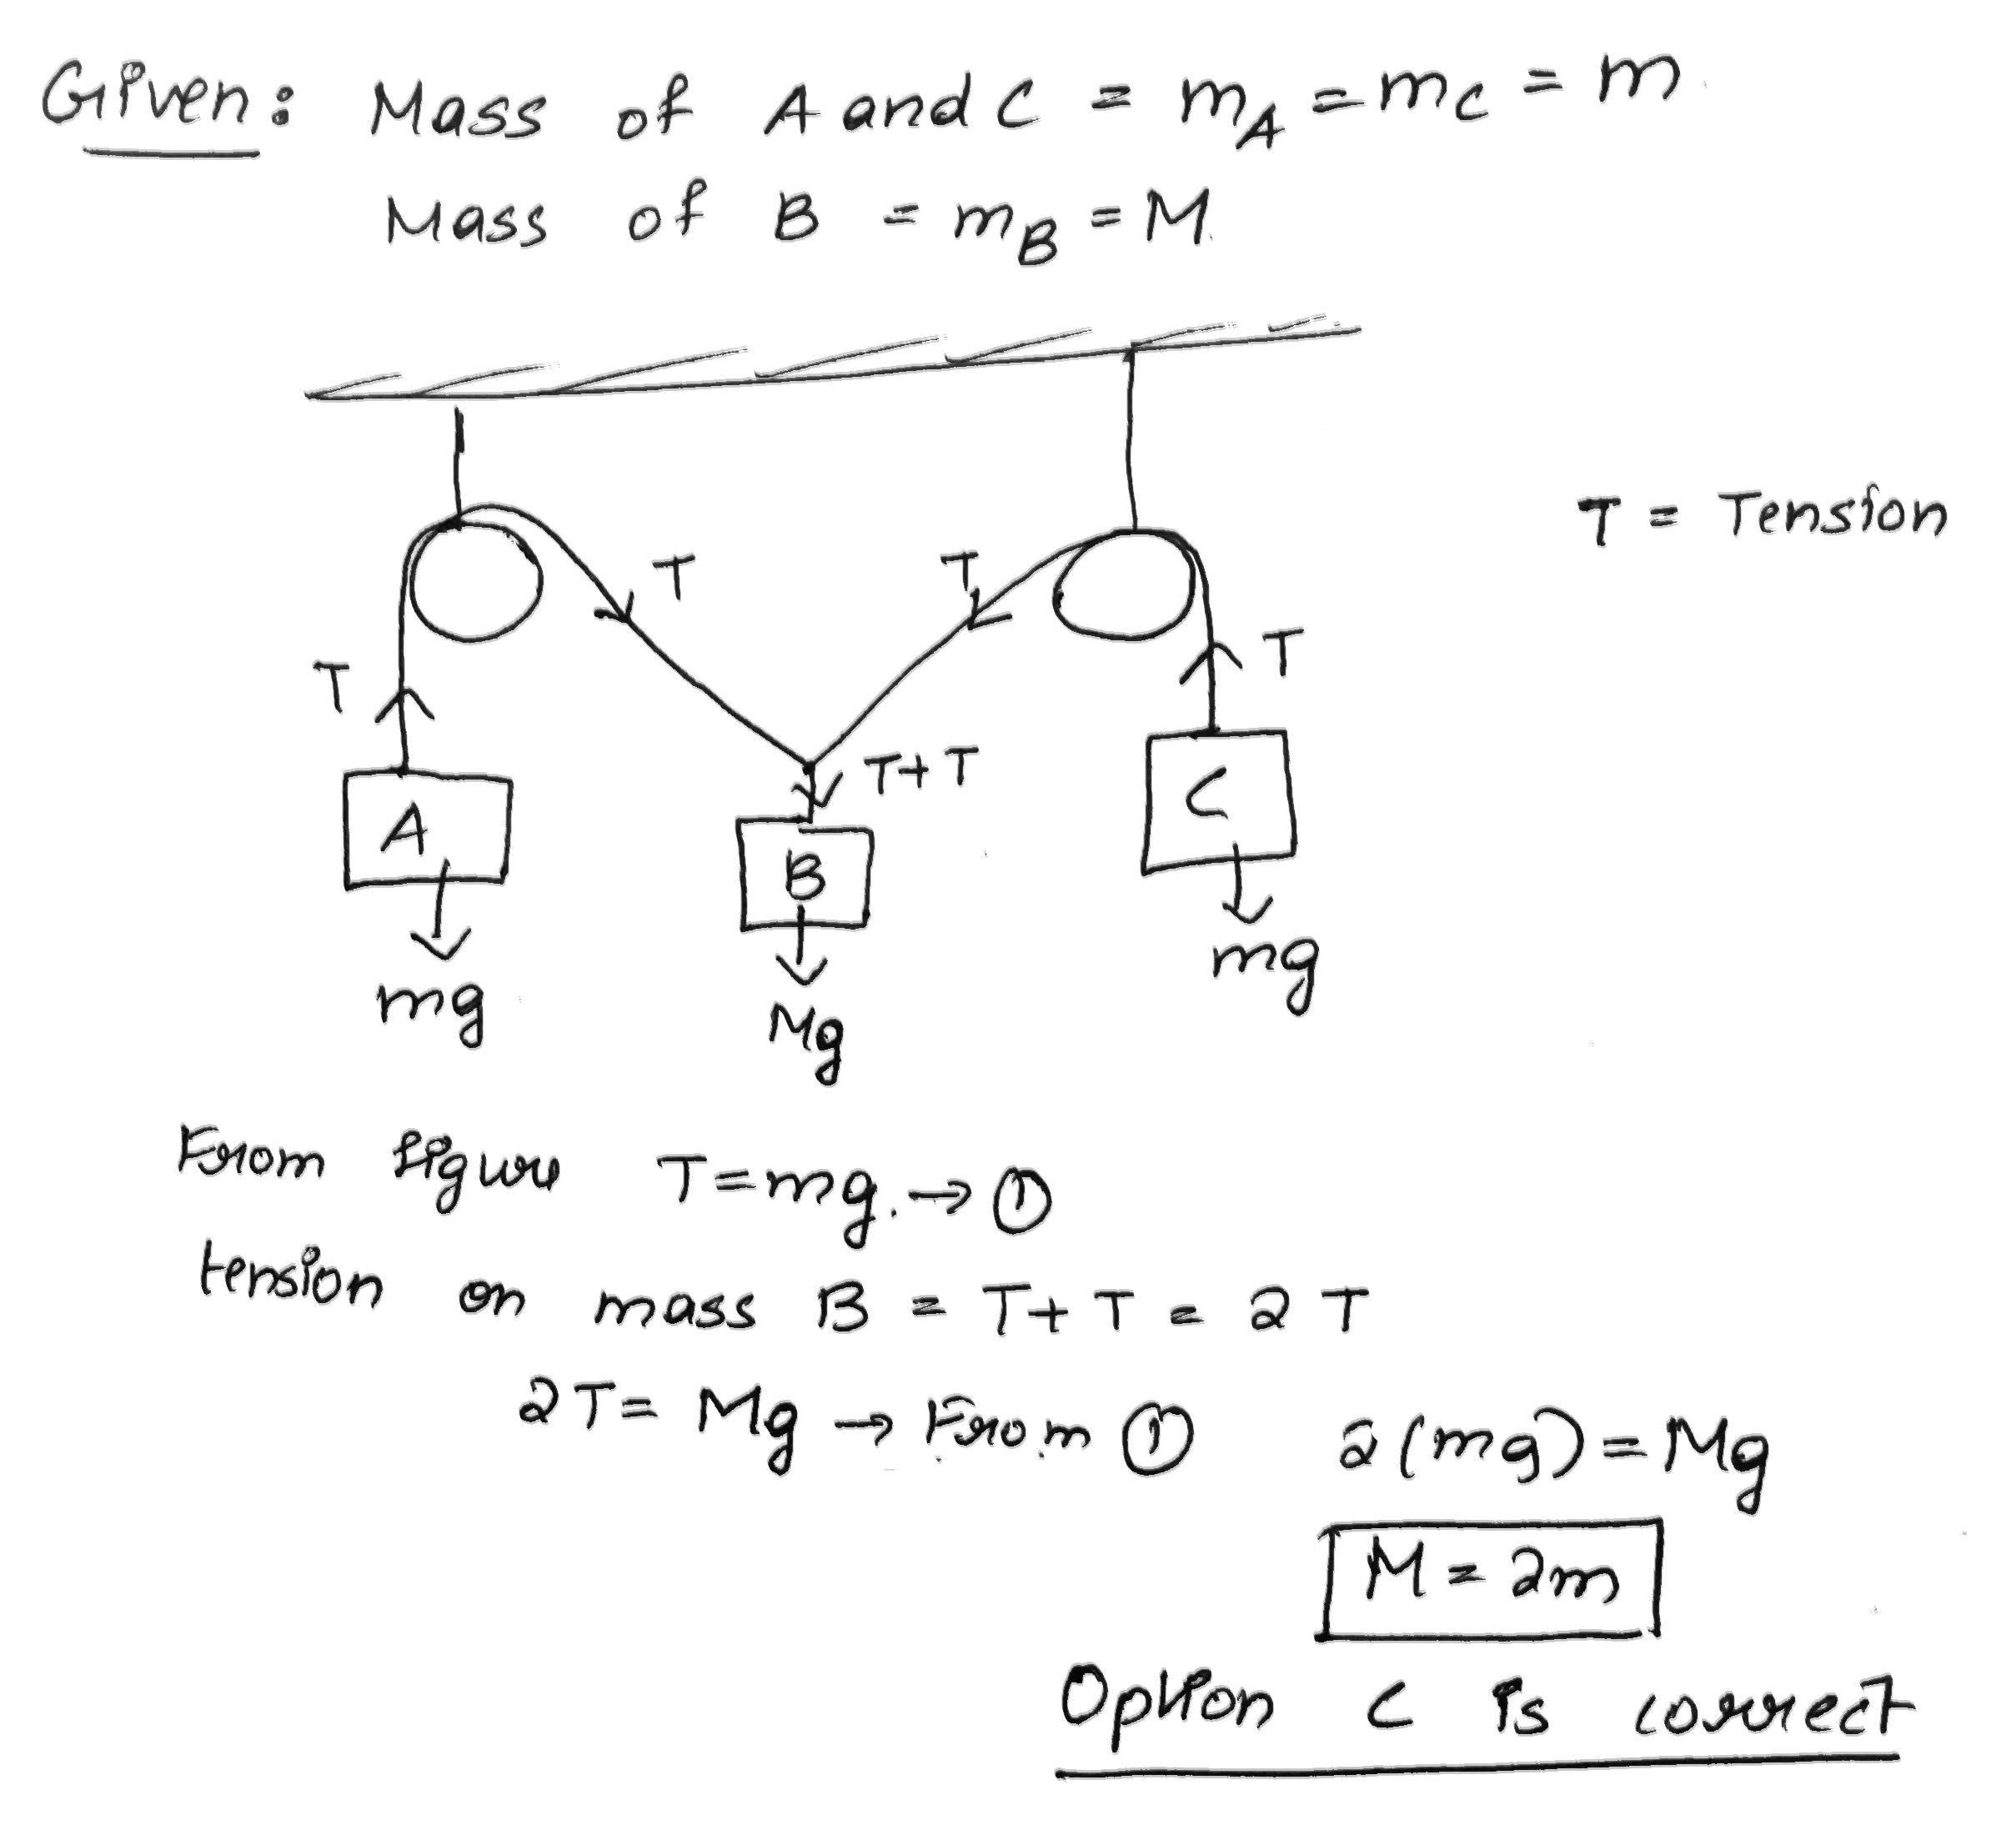 Given: Mass of A and C = m_A = m_C = m
Mass of B = m_B = M.
T = Tension
T T
T T
T+T
A B C
mg Mg mg
From figure T=mg. → ①
tension on mass B = T+T = 2T
2T = Mg → From ① 2(mg) = Mg
M = 2m
Option C is correct